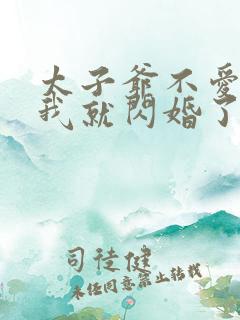 太子爺不愛
我就閃婚了
司徒健
未经同意禁止转载